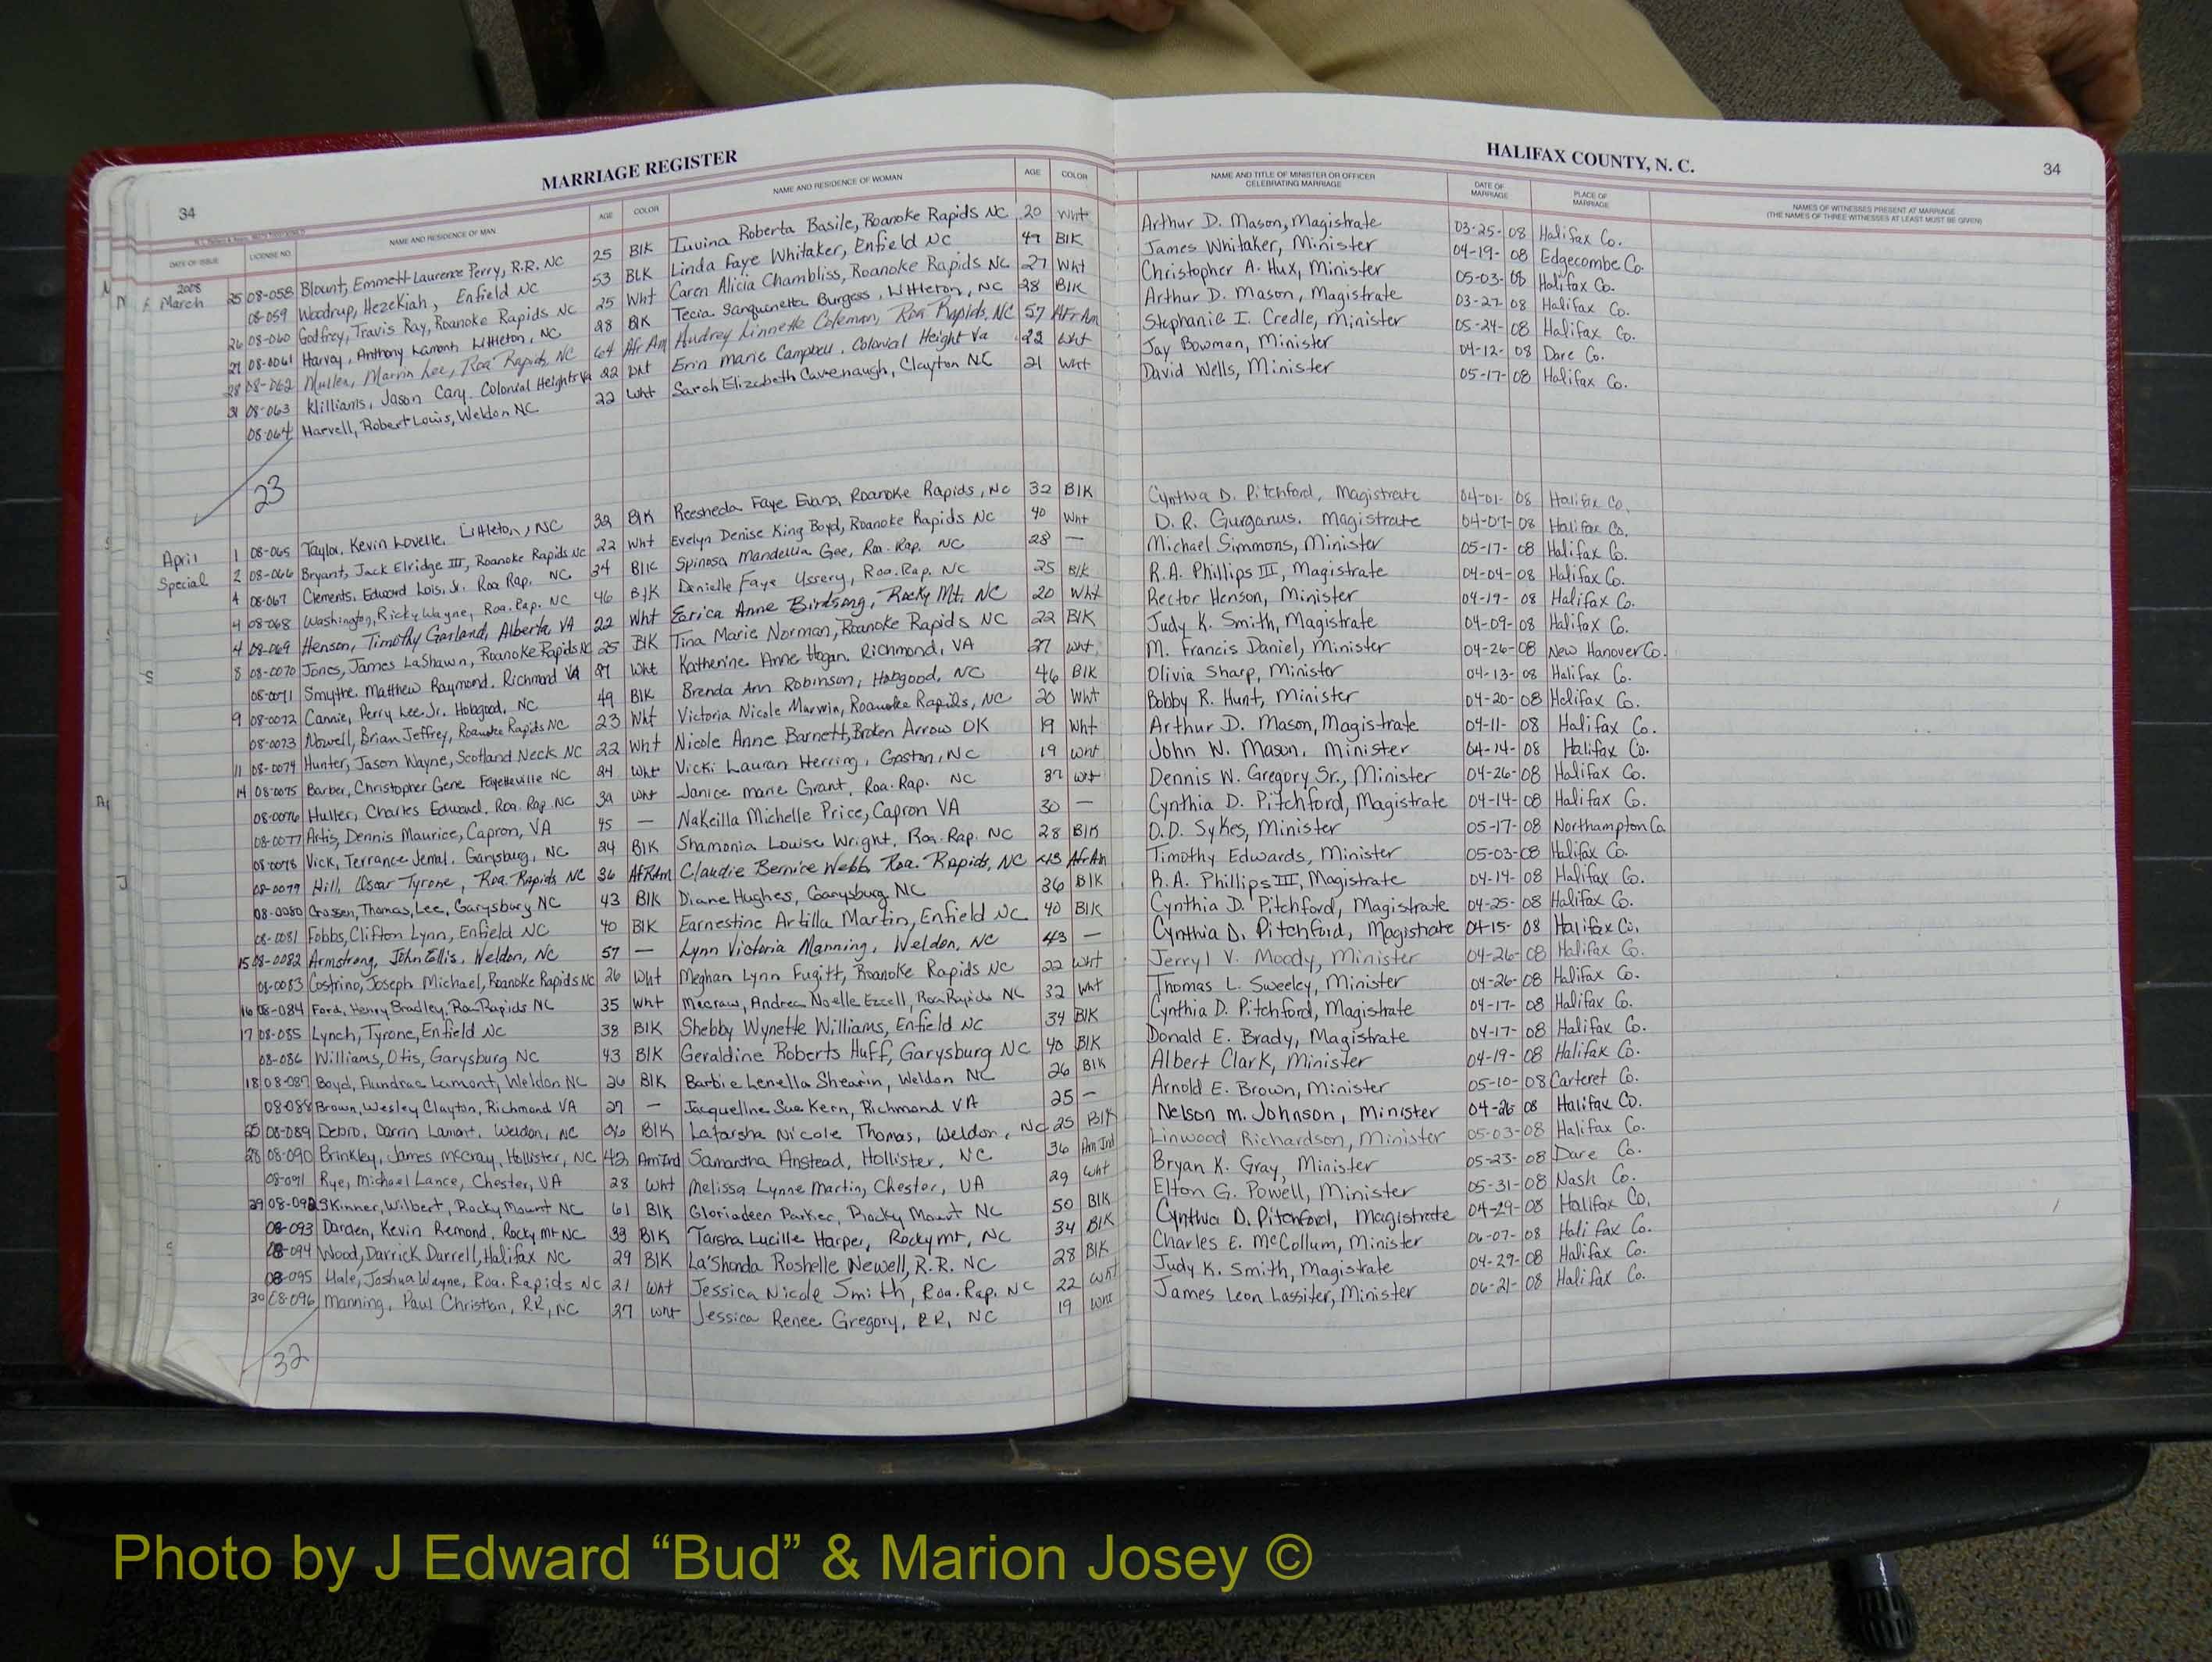 MARRIAGE REGISTER
HALIFAX COUNTY, N. C.
34
34
DATE OF ISSUE LICENSE NO. NAME AND RESIDENCE OF MAN AGE COLOR NAME AND RESIDENCE OF WOMAN AGE COLOR NAME AND TITLE OF MINISTER OR OFFICER CELEBRATING MARRIAGE DATE OF MARRIAGE PLACE OF MARRIAGE NAMES OF WITNESSES PRESENT AT MARRIAGE (THE NAMES OF THREE WITNESSES AT LEAST MUST BE GIVEN)
2008
March 25 08-058 Blount, Emmett Laurence Perry, R.R. NC 25 Blk Iuvina Roberta Basile, Roanoke Rapids NC 20 Wht Arthur D. Mason, Magistrate 03-25-08 Halifax Co.
08-059 Woodrup, Hezekiah, Enfield NC 53 BLK Linda Faye Whitaker, Enfield NC 49 BlK James Whitaker, Minister 04-19-08 Edgecombe Co.
26 08-060 Godfrey, Travis Ray, Roanoke Rapids NC 25 Wht Caren Alicia Chambliss, Roanoke Rapids NC 27 Wht Christopher A. Hux, Minister 05-03-08 Halifax Co.
27 08-0061 Harvey, Anthony Lamont Littleton, NC 28 Blk Tecia Sanquinetta Burgess, Littleton, NC 28 Blk Arthur D. Mason, Magistrate 03-27-08 Halifax Co.
28 08-062 Mullen, Marvin Lee, Roa Rapids, NC 64 Afr Am Audrey Linnette Coleman, Roa Rapids, NC 57 Afr Am Stephanie I. Credle, Minister 05-24-08 Halifax Co.
31 08-063 Williams, Jason Cary. Colonial Heights Va 22 Wht Erin Marie Campbell. Colonial Height Va 22 Wht Jay Bowman, Minister 04-12-08 Dare Co.
08-064 Harvell, Robert Louis, Weldon NC 22 Wht Sarah Elizabeth Cavenaugh, Clayton NC 21 Wht David Wells, Minister 05-17-08 Halifax Co.
23
April 1 08-065 Taylor, Kevin Lovelle. Littleton, NC 32 Blk Reesheda Faye Evans, Roanoke Rapids, NC 32 Blk Cynthia D. Pitchford, Magistrate 04-01-08 Halifax Co.
Special 2 08-066 Bryant, Jack Elridge III, Roanoke Rapids NC 22 Wht Evelyn Denise King Boyd, Roanoke Rapids NC 40 Wht D. R. Gurganus. Magistrate 04-07-08 Halifax Co.
4 08-067 Clements, Edward Lois, Jr. Roa Rap. NC 34 Blk Spinosa Mandella Gee, Roa. Rap. NC 28 — Michael Simmons, Minister 05-17-08 Halifax Co.
4 08-068 Washington, Ricky Wayne, Roa. Rap. NC 46 Blk Danielle Faye Ussery, Roa. Rap. NC 25 Blk R.A. Phillips III, Magistrate 04-04-08 Halifax Co.
4 08-069 Henson, Timothy Garland, Alberta, VA 22 Wht Earica Anne Birdsong, Rocky Mt. NC 20 Wht Rector Henson, Minister 04-19-08 Halifax Co.
8 08-0070 Jones, James LaShawn, Roanoke Rapids NC 25 Blk Tina Marie Norman, Roanoke Rapids NC 22 Blk Judy K. Smith, Magistrate 04-09-08 Halifax Co.
08-0071 Smythe, Matthew Raymond. Richmond VA 27 Wht Katherine Anne Hogan. Richmond, VA 27 Wht. M. Francis Daniel, Minister 04-26-08 New Hanover Co.
9 08-0072 Cannie, Perry Lee Jr. Hobgood, NC 49 Blk Brenda Ann Robinson, Hobgood, NC 46 Blk Olivia Sharp, Minister 04-13-08 Halifax Co.
08-0073 Nowell, Brian Jeffrey, Roanoke Rapids NC 23 Wht Victoria Nicole Marwin, Roanoke Rapids, NC 20 Wht Bobby R. Hunt, Minister 04-20-08 Halifax Co.
11 08-0074 Hunter, Jason Wayne, Scotland Neck NC 22 Wht Nicole Anne Barnett, Broken Arrow OK 19 Wht Arthur D. Mason, Magistrate 04-11-08 Halifax Co.
14 08-0075 Barber, Christopher Gene Fayetteville NC 24 Wht Vicki Lauran Herring, Gaston, NC 19 Wht John W. Mason, Minister 04-14-08 Halifax Co.
08-0076 Huller, Charles Edward. Roa. Rap. NC 39 Wht Janice Marie Grant, Roa. Rap. NC 37 Wht Dennis W. Gregory Sr., Minister 04-26-08 Halifax Co.
08-0077 Artis, Dennis Maurice, Capron, VA 45 — NaKeilla Michelle Price, Capron VA 30 — Cynthia D. Pitchford, Magistrate 04-14-08 Halifax Co.
08-0078 Vick, Terrance Jemal. Garysburg, NC 24 Blk Shamonia Louise Wright, Roa. Rap. NC 28 Blk O.D. Sykes, Minister 05-17-08 Northampton Co.
08-0079 Hill, Oscar Tyrone, Roa. Rapids NC 36 AfRAm Claudie Bernice Webb Roa. Rapids, NC 43 Afr Am Timothy Edwards, Minister 05-03-08 Halifax Co.
08-0080 Crossen, Thomas, Lee, Garysburg NC 43 Blk Diane Hughes, Garysburg, NC 36 Blk R.A. Phillips III, Magistrate 04-14-08 Halifax Co.
08-0081 Fobbs, Clifton Lynn, Enfield NC 40 BlK Earnestine Artilla Martin, Enfield NC 40 BlK Cynthia D. Pitchford, Magistrate 04-25-08 Halifax Co.
15 08-0082 Armstrong, John Ellis. Weldon, NC 57 — Lynn Victoria Manning, Weldon, NC 43 — Cynthia D. Pitchford, Magistrate 04-15-08 Halifax Co.
08-0083 Costrino, Joseph Michael, Roanoke Rapids NC 26 Wht Meghan Lynn Fugitt, Roanoke Rapids NC 22 Wht Jerryl V. Moody, Minister 04-26-08 Halifax Co.
16 08-084 Ford, Henry Bradley, Roa Rapids NC 35 Wht McCraw, Andrea Noelle Ezzell, Roa Rapids NC 32 Wht Thomas L. Sweeley, Minister 04-26-08 Halifax Co.
17 08-085 Lynch, Tyrone, Enfield NC 38 BlK Shebby Wynette Williams, Enfield NC 34 BlK Cynthia D. Pitchford, Magistrate 04-17-08 Halifax Co.
08-086 Williams, Otis, Garysburg NC 43 BlK Geraldine Roberts Huff, Garysburg NC 40 BlK Donald E. Brady, Magistrate 04-17-08 Halifax Co.
18 08-087 Boyd, Aundrae Lamont, Weldon NC 26 BlK Barbie Lenella Shearin, Weldon NC 26 BlK Albert Clark, Minister 04-19-08 Halifax Co.
08-088 Brown, Wesley Clayton, Richmond VA 27 — Jacqueline Sue Kern, Richmond VA 25 — Arnold E. Brown, Minister 05-10-08 Carteret Co.
25 08-089 Debro, Darrin Lamont. Weldon, NC 26 BlK Latarsha Nicole Thomas, Weldon, NC 25 BlK Nelson M. Johnson, Minister 04-26 08 Halifax Co.
28 08-090 Brinkley, James McCray, Hollister, NC 42 AmInd Samantha Anstead, Hollister, NC 36 Am Ind Linwood Richardson, Minister 05-03-08 Halifax Co.
08-091 Rye, Michael Lance, Chester, VA 28 Wht Melissa Lynne Martin, Chester, VA 29 Wht Bryan K. Gray, Minister 05-23-08 Dare Co.
29 08-092 Skinner, Wilbert, Rocky Mount NC 61 BlK Gloriadeen Parker, Rocky Mount NC 50 BlK Elton G. Powell, Minister 05-31-08 Nash Co.
08-093 Darden, Kevin Remond, Rocky Mt NC 33 BlK Tarsha Lucille Harper, Rocky Mt, NC 34 BlK Cynthia D. Pitchford, Magistrate 04-29-08 Halifax Co.
08-094 Wood, Darrick Darrell, Halifax NC 29 BlK La'Shonda Roshelle Newell, R.R. NC 28 BlK Charles E. McCollum, Minister 06-07-08 Halifax Co.
08-095 Hale, Joshua Wayne, Roa. Rapids NC 21 Wht Jessica Nicole Smith, Roa. Rap. NC 22 Wht Judy K. Smith, Magistrate 04-29-08 Halifax Co.
30 08-096 Manning, Paul Christian, RR, NC 27 Wht Jessica Renee Gregory, RR, NC 19 Wht James Leon Lassiter, Minister 06-21-08 Halifax Co.
32
Photo by J Edward “Bud” & Marion Josey ©